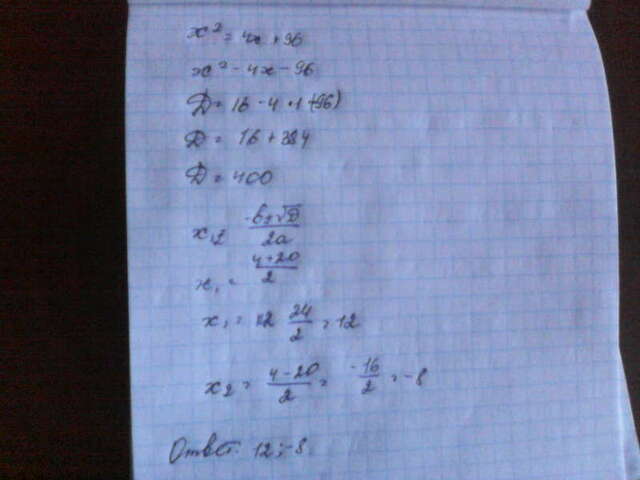 x² = 4x + 96
x² - 4x - 96
D = 16 - 4 · 1 (-96)
D = 16 + 384
D = 400
x₁,₂ -b±√D / 2a
x₁ = 4+20 / 2
x₁ = 24 / 2 = 12
x₂ = 4-20 / 2 = -16 / 2 = -8
Ответ: 12; -8